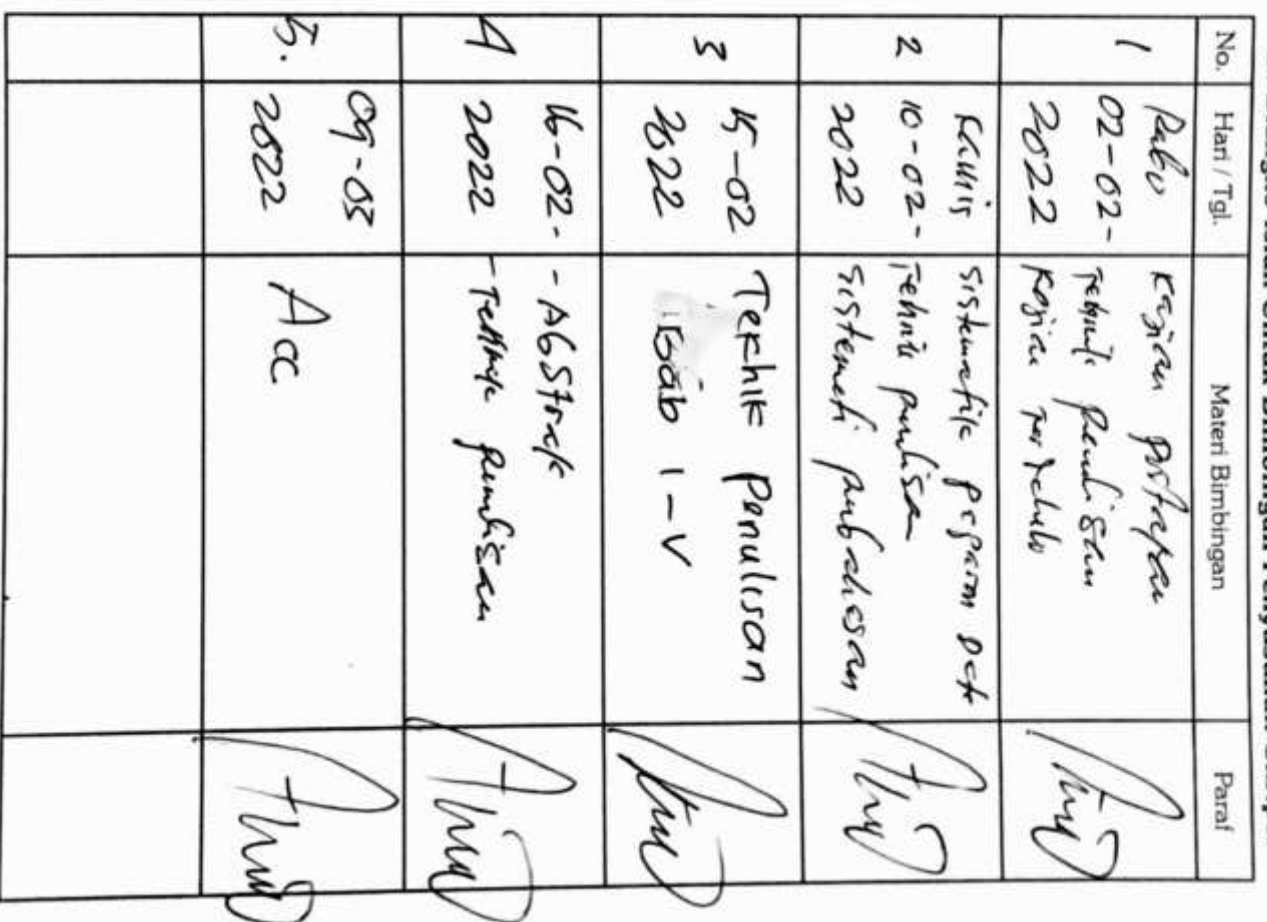 No. Hari / Tgl. Materi Bimbingan Paraf
1
Rabu
02-02-
2022
Kajian
Tehnik penulisan
Kajian terdahulu
2
Kamis
10-02-
2022
Sistematik paparan Data
Tehnik penulisan
sistemati pembahasan
3
15-02
2022
Tekhik penulisan
Bab I-V
4
16-02-
2022
- AbStrak
- Tekhnik penulisan
5.
09-03
2022
Acc